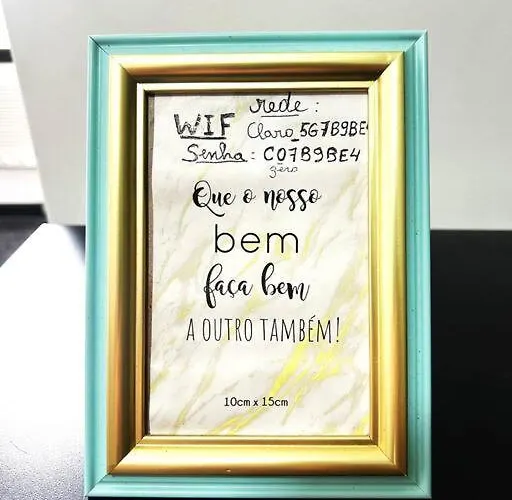 rede:
WIF Claro_5G7B9BE
Senha: C07B9BE4
zero
Que o nosso
bem
faça bem
A OUTRO TAMBÉM!
10cm x 15cm